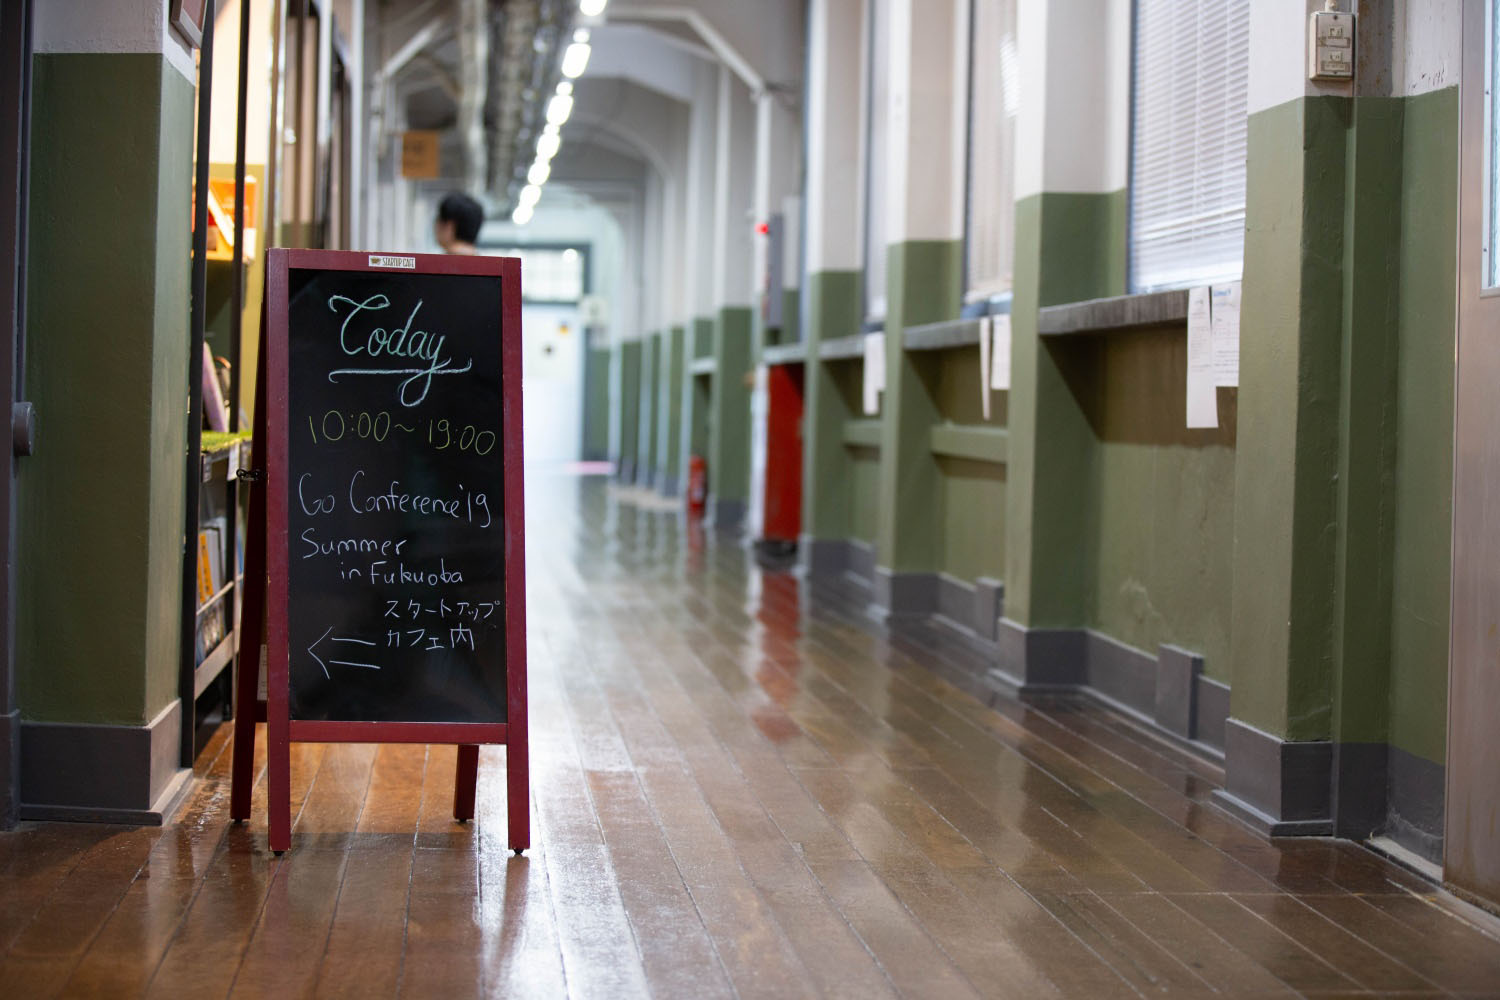 STARTUP CAFE
Today
10:00~19:00
Go Conference'19
Summer
in Fukuoba
スタートアップ
カフェ内